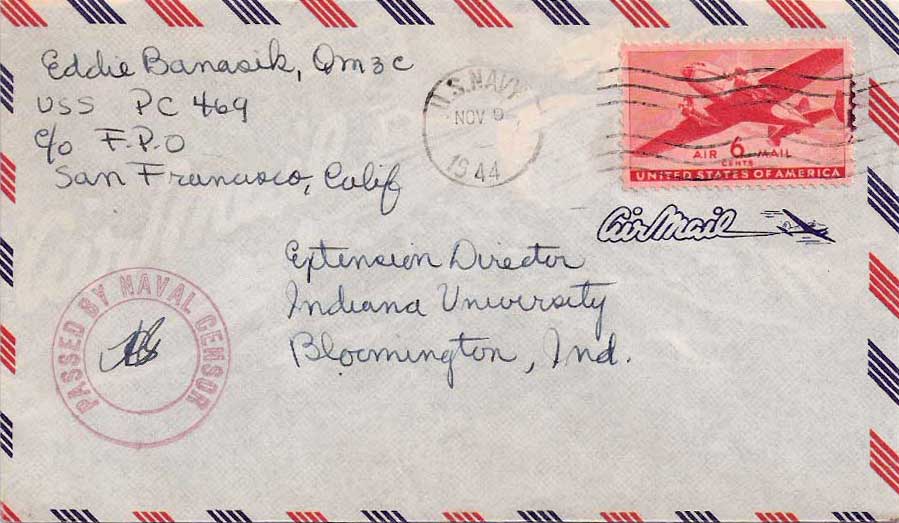 Eddie Banasik, QM3c
USS PC 469
c/o F.P.O
San Francisco, Calif
U.S. NAVY
NOV 9
1944
AIR 6 MAIL
CENTS
UNITED STATES OF AMERICA
Air Mail
Extension Director
Indiana University
Bloomington, Ind.
PASSED BY NAVAL CENSOR